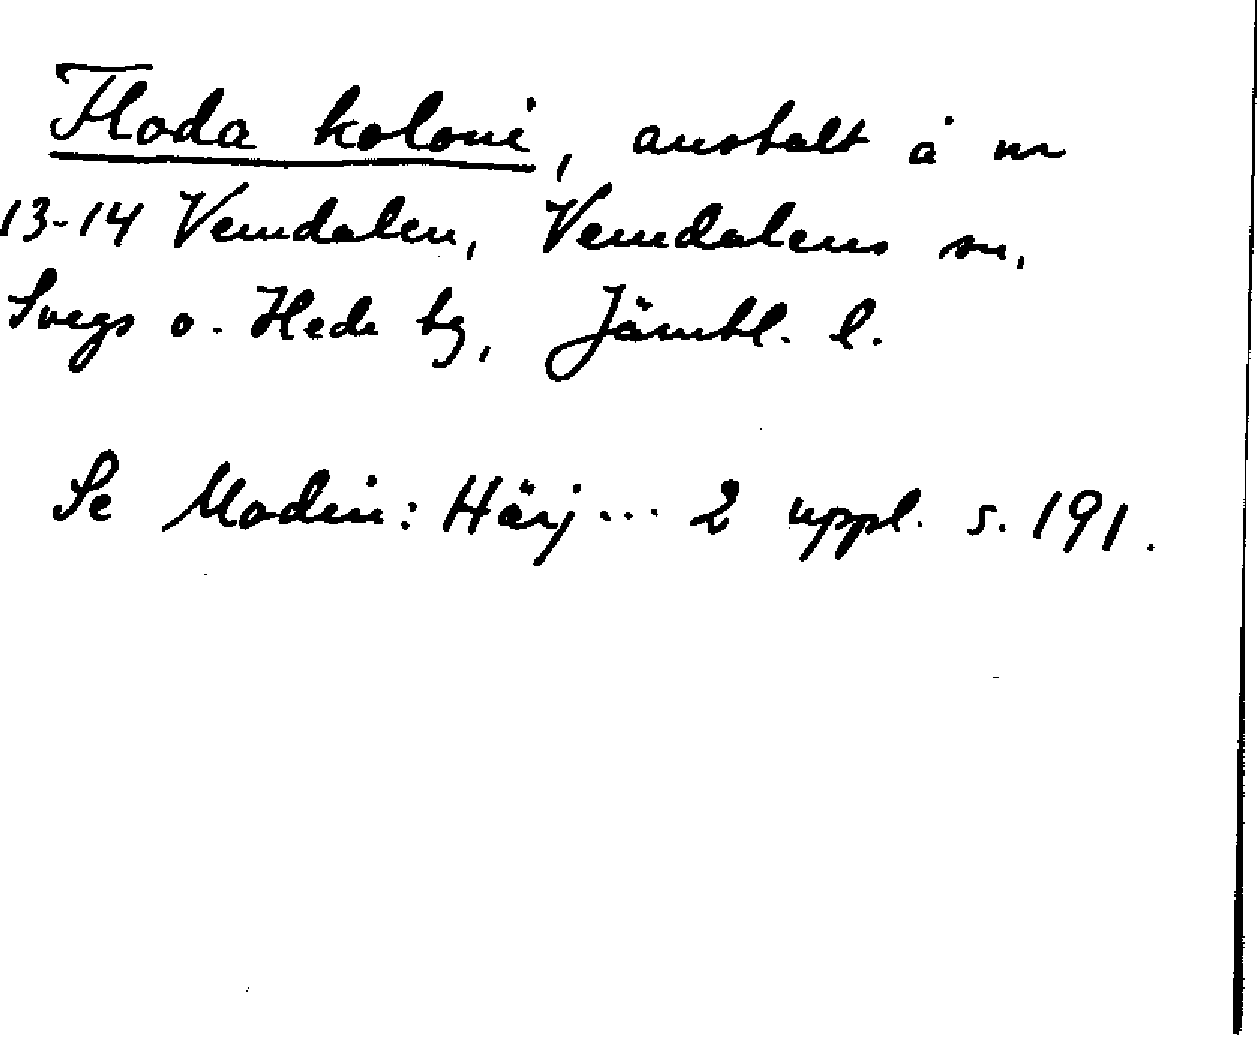 Floda koloni, anstalt å nr
13-14 Vemdalen, Vemdalens sn,
Svegs o. Hede tg, Jämtl. l.
Se Modin: Härj... 2 uppl. s. 191.